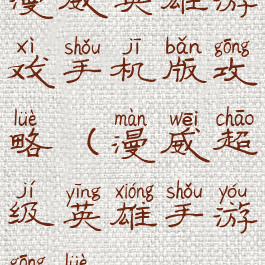 漫威英雄游
xì shǒu jī bǎn gōng
戏手机版攻
lüè màn wēi chāo
略（漫威超
jí yīng xióng shǒu yóu
级英雄手游
gōng lüè